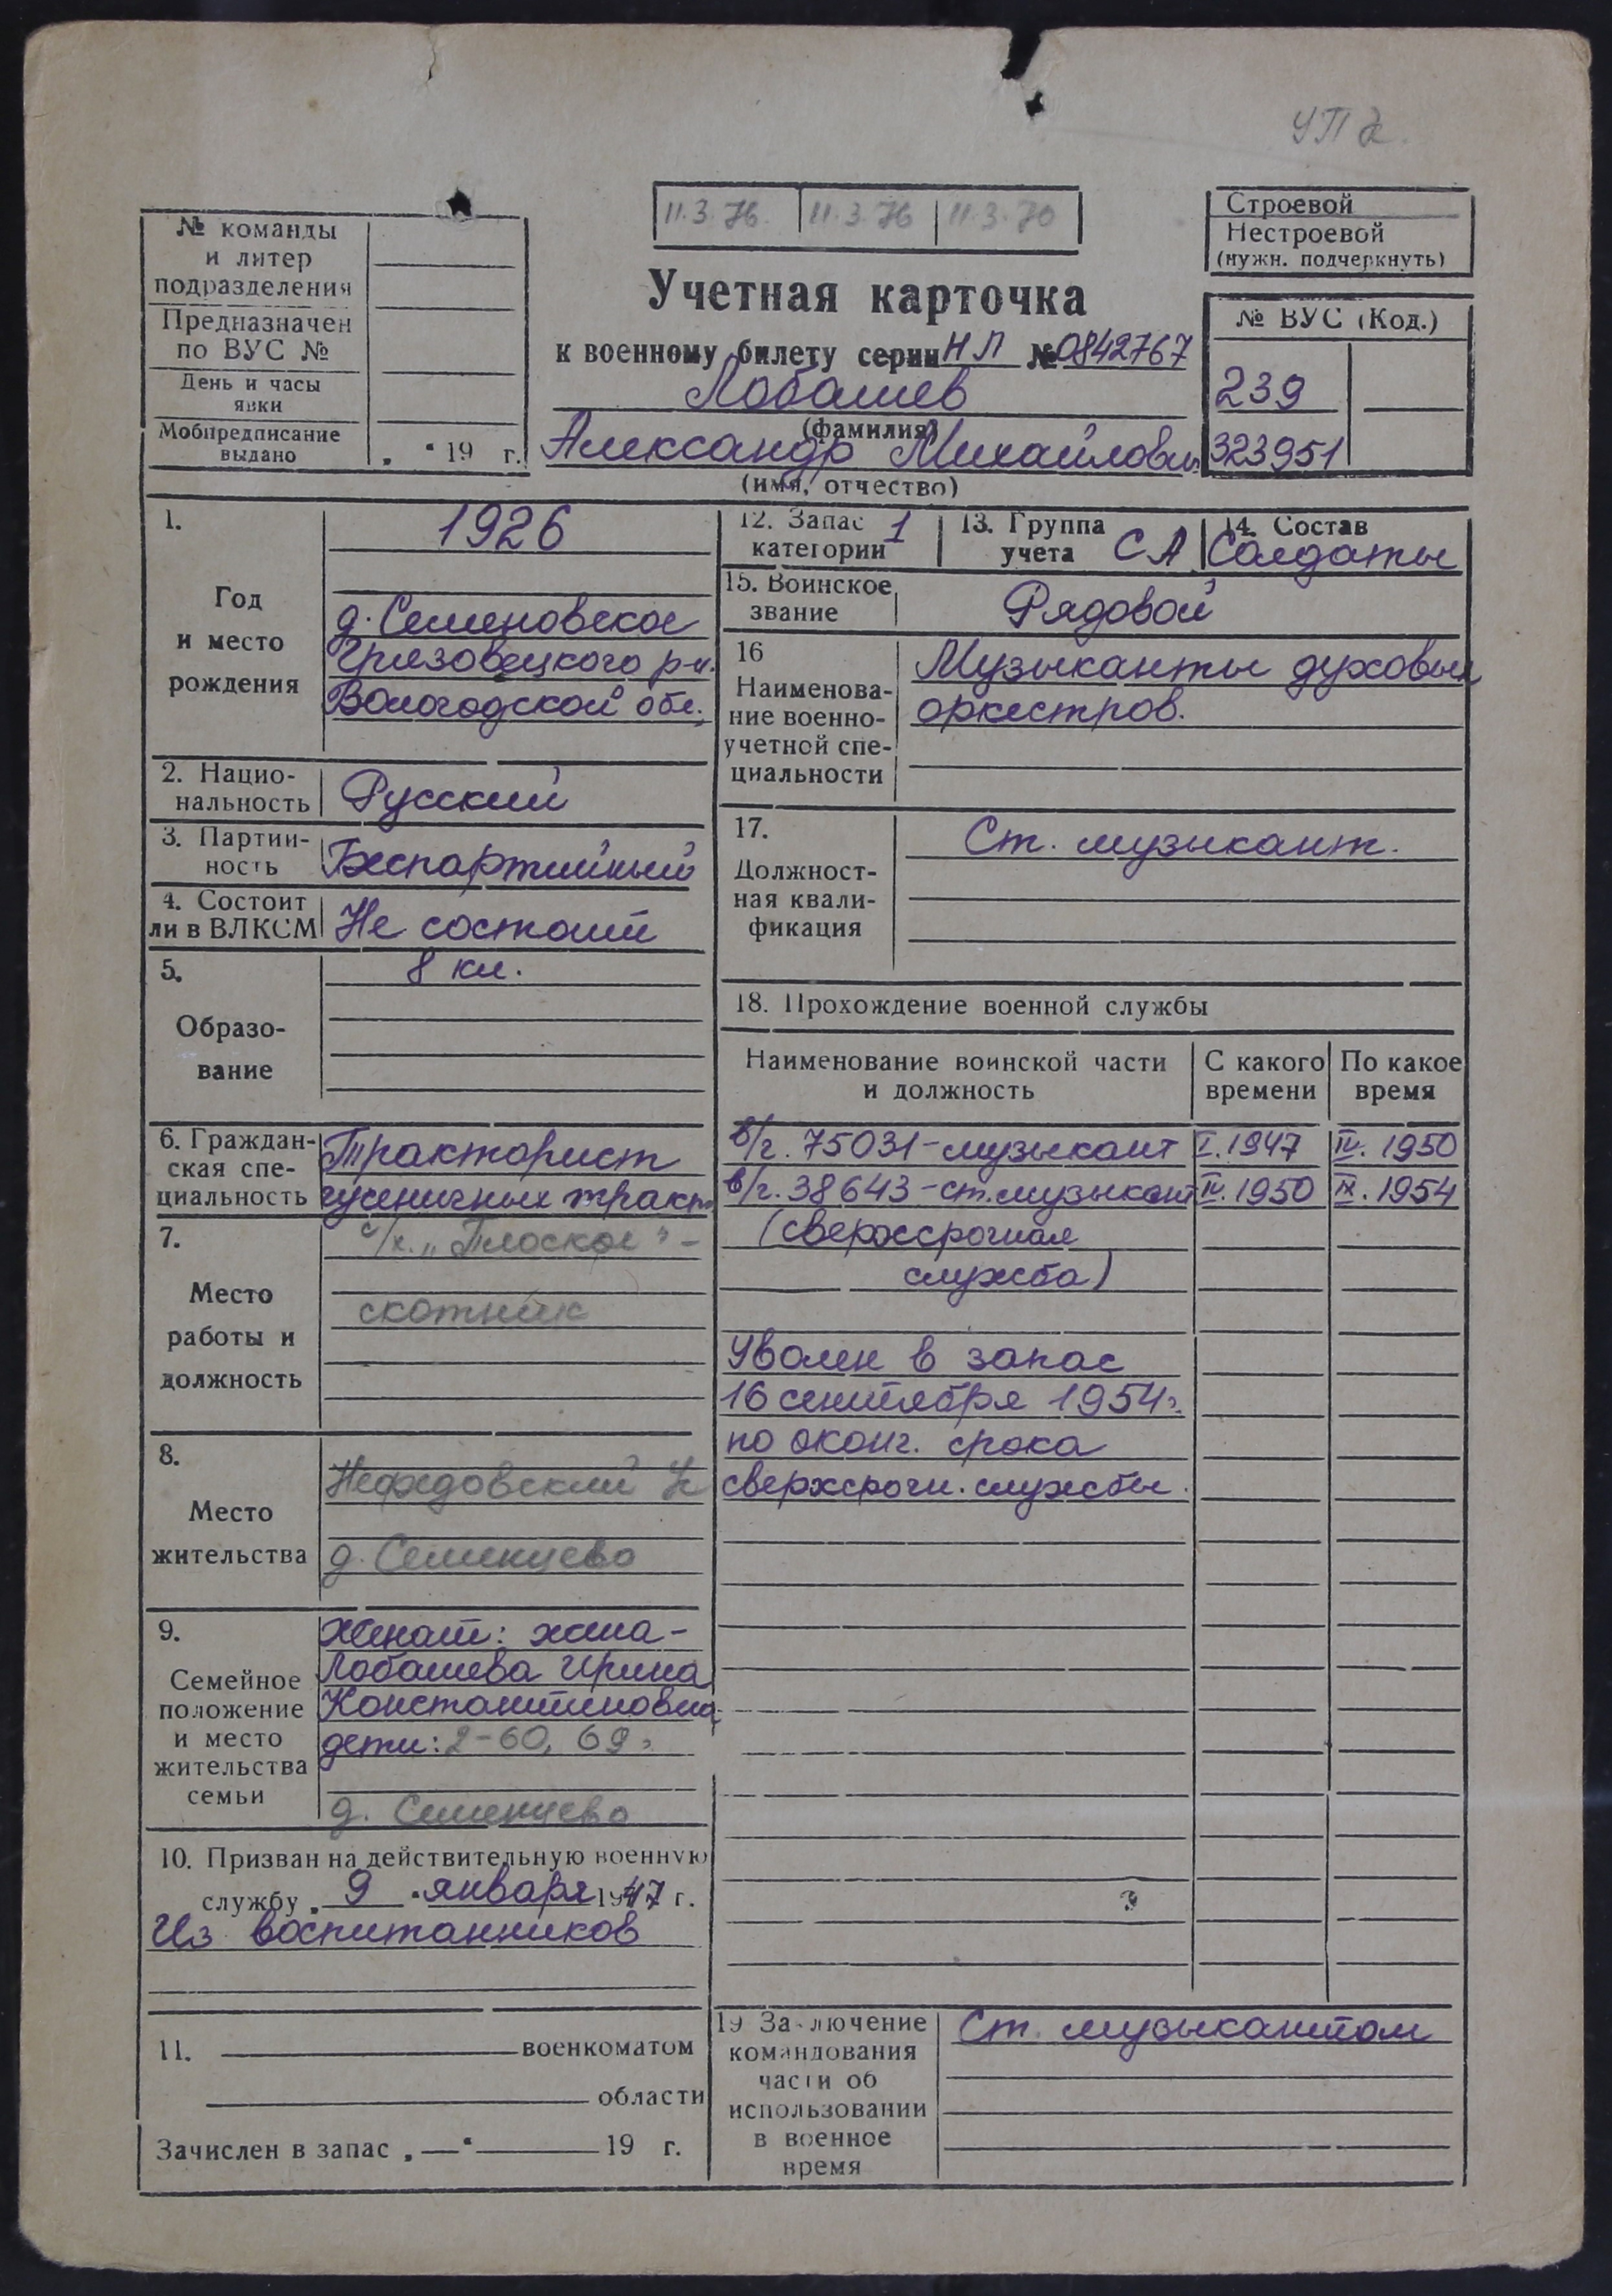 УП
11.3.76. 11.3.76 11.3.76
№ команды
и литер
подразделения
Предназначен
по ВУС №
День и часы
явки
Мобпредписание
выдано
„ “ 19 г.
Учетная карточка
к военному билету серии НЛ № 0842767
Лобашев
(фамилия)
Александр Михайлович
(имя, отчество)
Строевой
Нестроевой
(нужн. подчеркнуть)
№ ВУС (Код.)
239
323951
1.
Год
и место
рождения
1926
д. Семеновское
Грязовецкого р-н.
Вологодской обл.
2. Нацио-
нальность
Русский
3. Партий-
ность
Беспартийный
4. Состоит
ли в ВЛКСМ
Не состоит
5.
Образо-
вание
8 кл.
6. Граждан-
ская спе-
циальность
Тракторист
гусеничных тракт.
7.
Место
работы и
должность
с/х. „Плоское" -
скотник
8.
Место
жительства
Нефедовский
д. Семенцево
9.
Семейное
положение
и место
жительства
семьи
Женат: жена -
Лобашева Ирина
Константиновна
дети: 2-60, 69г.
д. Семенцево
10. Призван на действительную военную
службу „ 9 “ января 1947 г.
Из воспитанников
11. военкоматом
области
Зачислен в запас „ — “ 19 г.
12. Запас
категории 1
13. Группа
учета СА
14. Состав
Солдаты
15. Воинское
звание
Рядовой
16
Наименова-
ние военно-
учетной спе-
циальности
Музыканты духовых
оркестров.
17.
Должност-
ная квали-
фикация
Ст. музыкант.
18. Прохождение военной службы
Наименование воинской части
и должность
С какого
времени
По какое
время
в/ч. 75031 - музыкант I. 1947 IV. 1950
в/ч. 38643 - ст. музыкант IV. 1950 IX. 1954
(сверхсрочная
служба)
Уволен в запас
16 сентября 1954г.
по оконч. срока
сверхсрочн. службы.
19 Заключение
командования
части об
использовании
в военное
время
Ст. музыкантом